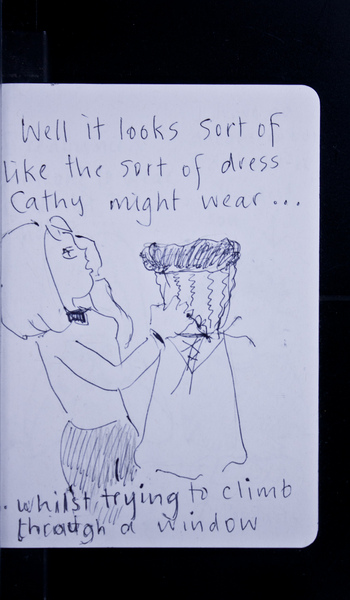 Well it looks sort of
like the sort of dress
Cathy might wear...
. whilst trying to climb
through a window